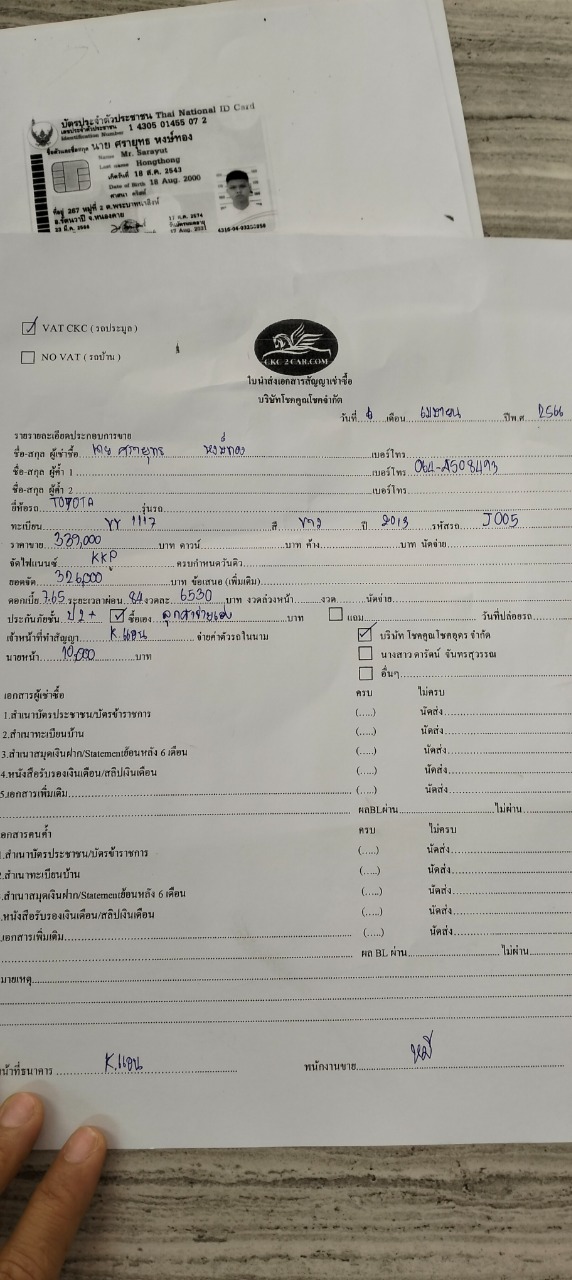 บัตรประจำตัวประชาชน Thai National ID Card
เลขประจำตัวประชาชน 1 4305 01455 07 2
Identification Number
ชื่อตัวและชื่อสกุล นาย ศรายุทธ หงษ์ทอง
Name Mr. Sarayut
Last name Hongthong
เกิดวันที่ 18 ส.ค. 2543
Date of Birth 18 Aug. 2000
ศาสนา
ที่อยู่ 287 หมู่ที่ 2 ต.พระบาทนาสิงห์
อ.รัตนวาปี จ.หนองคาย
☑ VAT CKC ( รถประมูล )
☐ NO VAT ( รถบ้าน )
CKC 2 CAR.COM
ใบนำส่งเอกสารสัญญาเช่าซื้อ
บริษัทโชคคูณโชคจำกัด
วันที่ เดือน เมษายน ปีพ.ศ. 2566
รายรายละเอียดประกอบการขาย
ชื่อ-สกุล ผู้เช่าซื้อ นาย ศรายุทธ หงษ์ทอง เบอร์โทร
ชื่อ-สกุล ผู้ค้ำ 1 เบอร์โทร
ชื่อ-สกุล ผู้ค้ำ 2 เบอร์โทร
ยี่ห้อรถ TOYOTA รุ่นรถ
ทะเบียน 1117 สี ขาว ปี 2013 รหัสรถ J005
ราคาขาย 339,000 บาท ดาวน์ บาท ค้าง บาท นัดจ่าย
จัดไฟแนนซ์ KKP ครบกำหนดวันดิว
ยอดจัด 326,000 บาท ข้อเสนอ (เพิ่มเติม)
ดอกเบี้ย 7.65 ระยะเวลาผ่อน 84 งวดละ 6530 บาท งวดล่วงหน้า งวด นัดจ่าย
ประกันภัยชั้น ป2+ ☑ ซื้อเอง ลูกค้าจ่ายเอง บาท ☐ แถม วันที่ปล่อยรถ
เจ้าหน้าที่ทำสัญญา K.แอน จ่ายค่าตัวรถในนาม ☑ บริษัท โชคคูณโชคอุดร จำกัด
นายหน้า 10,000 บาท ☐ นางสาว ดารัตน์ จันทรสุวรรณ
☐ อื่นๆ
เอกสารผู้เช่าซื้อ ครบ ไม่ครบ
1.สำเนาบัตรประชาชน/บัตรข้าราชการ (.....) นัดส่ง
2.สำเนาทะเบียนบ้าน (.....) นัดส่ง
3.สำเนาสมุดเงินฝาก/Statementย้อนหลัง 6 เดือน (.....) นัดส่ง
4.หนังสือรับรองเงินเดือน/สลิปเงินเดือน (.....) นัดส่ง
5.เอกสารเพิ่มเติม (.....) นัดส่ง
ผลBLผ่าน ไม่ผ่าน
เอกสารคนค้ำ ครบ ไม่ครบ
.สำเนาบัตรประชาชน/บัตรข้าราชการ (.....) นัดส่ง
.สำเนาทะเบียนบ้าน (.....) นัดส่ง
.สำเนาสมุดเงินฝาก/Statementย้อนหลัง 6 เดือน (.....) นัดส่ง
.หนังสือรับรองเงินเดือน/สลิปเงินเดือน (.....) นัดส่ง
.เอกสารเพิ่มเติม (.....) นัดส่ง
ผล BL ผ่าน ไม่ผ่าน
มายเหตุ
น้าที่ธนาคาร K.แอน พนักงานขาย หมี